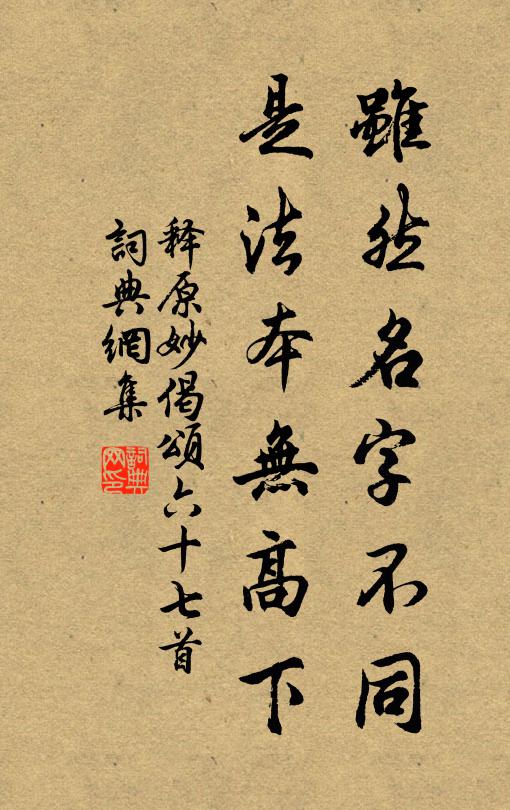 雖然名字不同
是法本無高下
释原妙偈頌六十七首
詞典網集
詞典网印